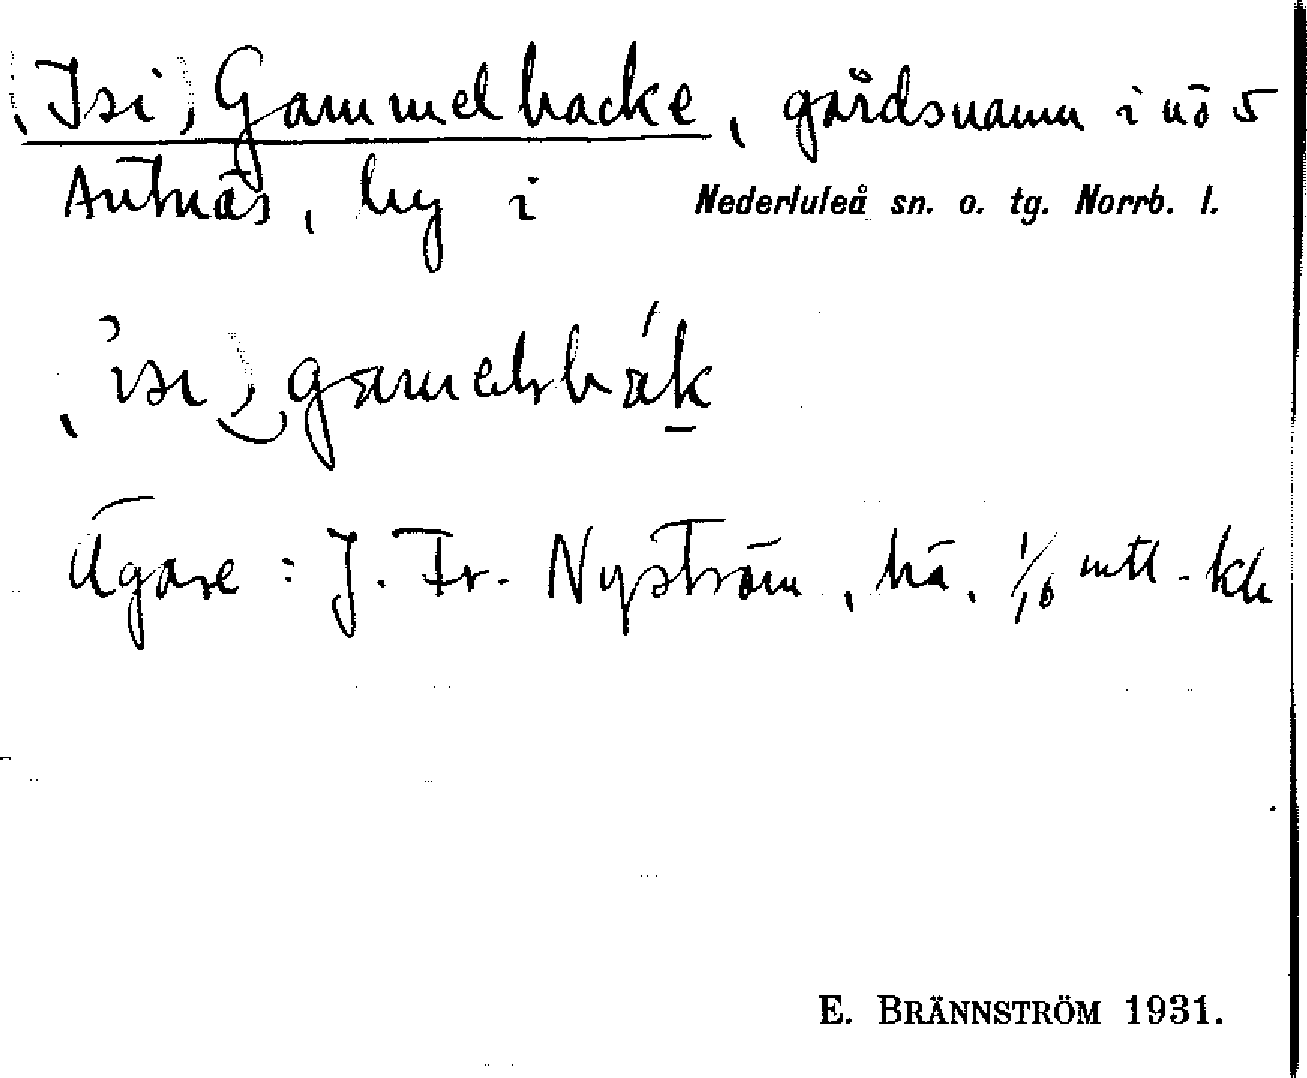 (Isi) Gammelbacke, gårdsnamn i nö 5
Antnäs, by i Nederluleå sn. o. tg. Norrb. l.
Ägare: J. Fr. Nyström, hä. 1/16 mtl -kh
E. BRÄNNSTRÖM 1931.